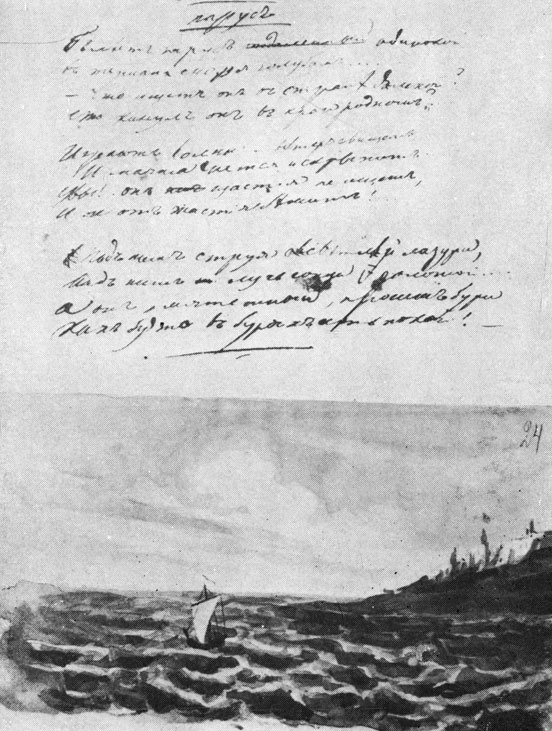 парусъ
Бѣлѣетъ парусъ одинокой
въ туманѣ моря голубомъ...
– Что ищетъ онъ въ странѣ далекой?
Что кинулъ онъ въ краю родномъ?
Играютъ волны – вѣтеръ свищетъ,
И мачта гнется и скрыпитъ
Увы! онъ щастія не ищетъ,
И не отъ щастія бѣжитъ!
Подъ нимъ струя свѣтлѣй лазури,
Надъ нимъ лучь солнца золотой...
А онъ, мятежный, проситъ бури,
Какъ будто въ буряхъ есть покой! –
24